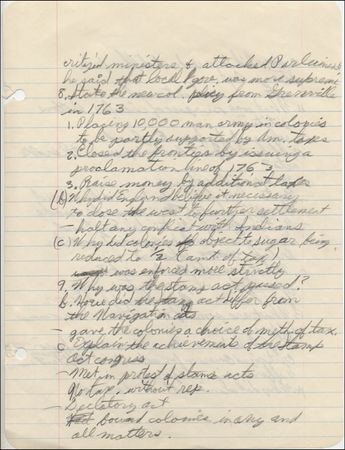 critized ministers & attacked Parliament
he said that local gov. was more supreme
8. State the new col. policy from Grenville
in 1763
1. Placing 10,000 man army in colonies
to be partly supported by Am. taxes
2. Closed the frontier by issuing a
proclamation line of 1763
3. Raise money by additional taxes
(b) Why did England believe it necessary
to close the west to further settlement
- halt any conflict with Indians
(c) Why did colonies object to sugar being
reduced to 1/2 (amt. of tax)
was enforced more strictly
9. Why was the stamp act passed?
b. How did the stamp act differ from
the Navigation acts
- gave the colonies a choice of meth. of tax
c Explain the achievements of the stamp
act congress
- Met in protest of stamp acts
No tax. without rep.
- Declatory act
bound colonies in any and
all matters.